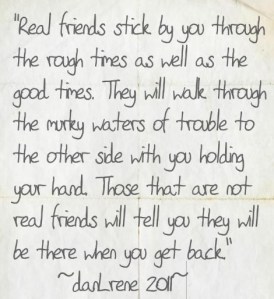 "Real friends stick by you through
the rough times as well as the
good times. They will walk through
the murky waters of trouble to
the other side with you holding
your hand. Those that are not
real friends will tell you they will
be there when you get back."
~darLrene 2011~